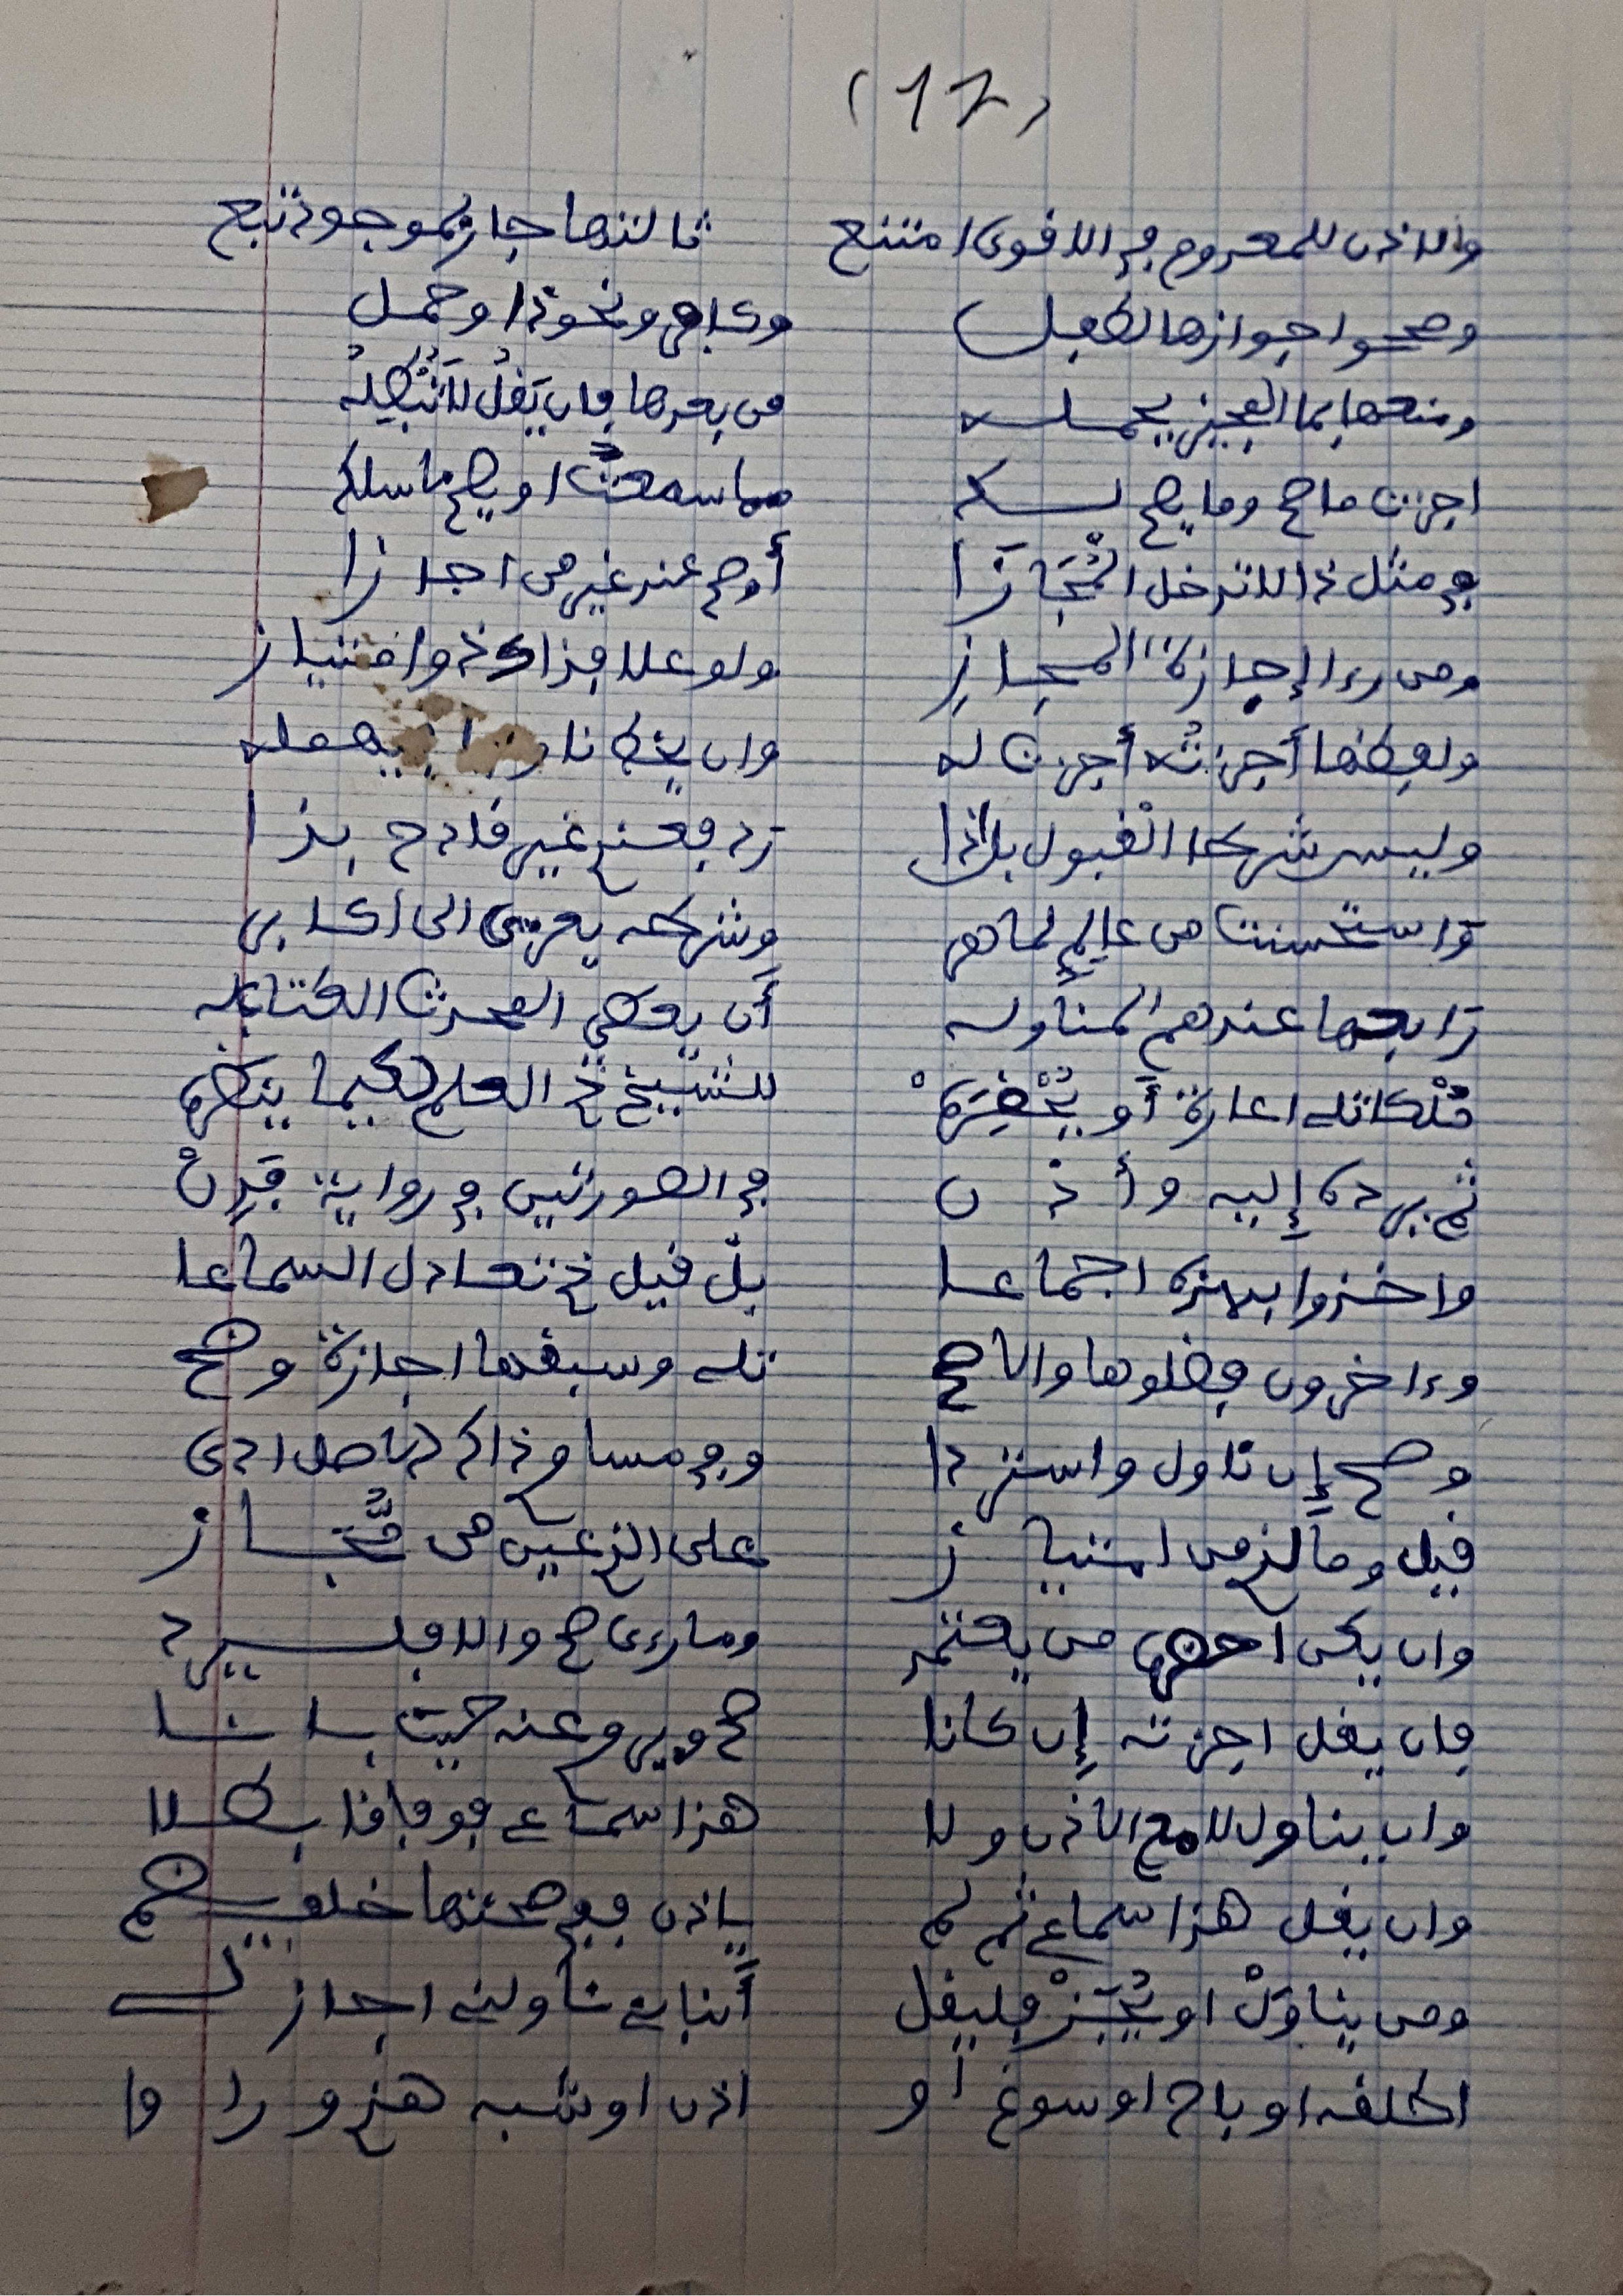 (17)
والاذن للمعدوم في الاقوى امتنع ثالثها جاز لموجود تبع
وصححوا جوازها لطفل وكافر ونحو ذا وحمل
ومنعها بما المجيز يحمله من بعدها فان يقل لا تبطله
اجزت ما صح وما يصح لك مما سمعت او يصح ما سلك
في مثل ذا لا تدخل المجازا أو صح عند غير من اجازا
ومن رءا إجازة المجاز ولو علا فذاك ذو امتياز
ولفظها أجزته أجزت له وان يخط ناويا يهمله
وليس شرطا القبول بل اذا رد فعندي غير قادح بذا
واستحسنت من عالم لماهر وشرطه يعزى الى اكابر
رابعها عندهم المناوله أن يعطي المحدث الكتاب له
ملكا تله اعارة أو يحضره للشيخ ذي العلم لكيما ينظره
ثم يرده إليه وأذن في الصورتين في رواية فدن
واخذوا بهذه اجماعا بل قيل ذي تعادل السماعا
وءاخرون فضلوها والاصح تلي وسبقها اجازة وضح
وصح إن ناول واستردا وفي مساو ذاك الاصل ادى
قيل وما لذي من امتياز على الذي عين من مجاز
وان يكن احضره من يعتمد وما رءى صح والا فليرد
فان يقل اجزته إن كانا صح ويرو عنه حيث بانا
وان يناول لا مع الاذن ولا هذا سماعي فوفاقا بطلا
وان يقل هذا سماعي ثم لم ياذن ففي صحتها خلف يضم
ومن يناول او يجز فليقل أنباني ناولني اجاز لي
اطلقه او باح او سوغ او اذن او شبه هذي وراوا